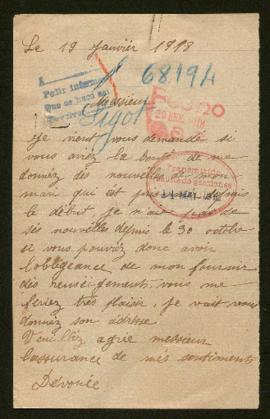 Le 19 Janvier 1918
68194
Pedir inform
Messieur
Je vient vous demandé si
vous auriez la bonté de me
donniez des nouvelles de mon
mari qui est pris depuis
le début je n'ait pas de
ses nouvelles depuis le 30 octobre
si vous pouviez donc avoir
l'obligeance de mon fournir
des renseignements vous me
feriez très plaisir, je vait vous
donniez son adresse
Veuillez agrée messieur
l'assurance de mes sentiments
Dévouée